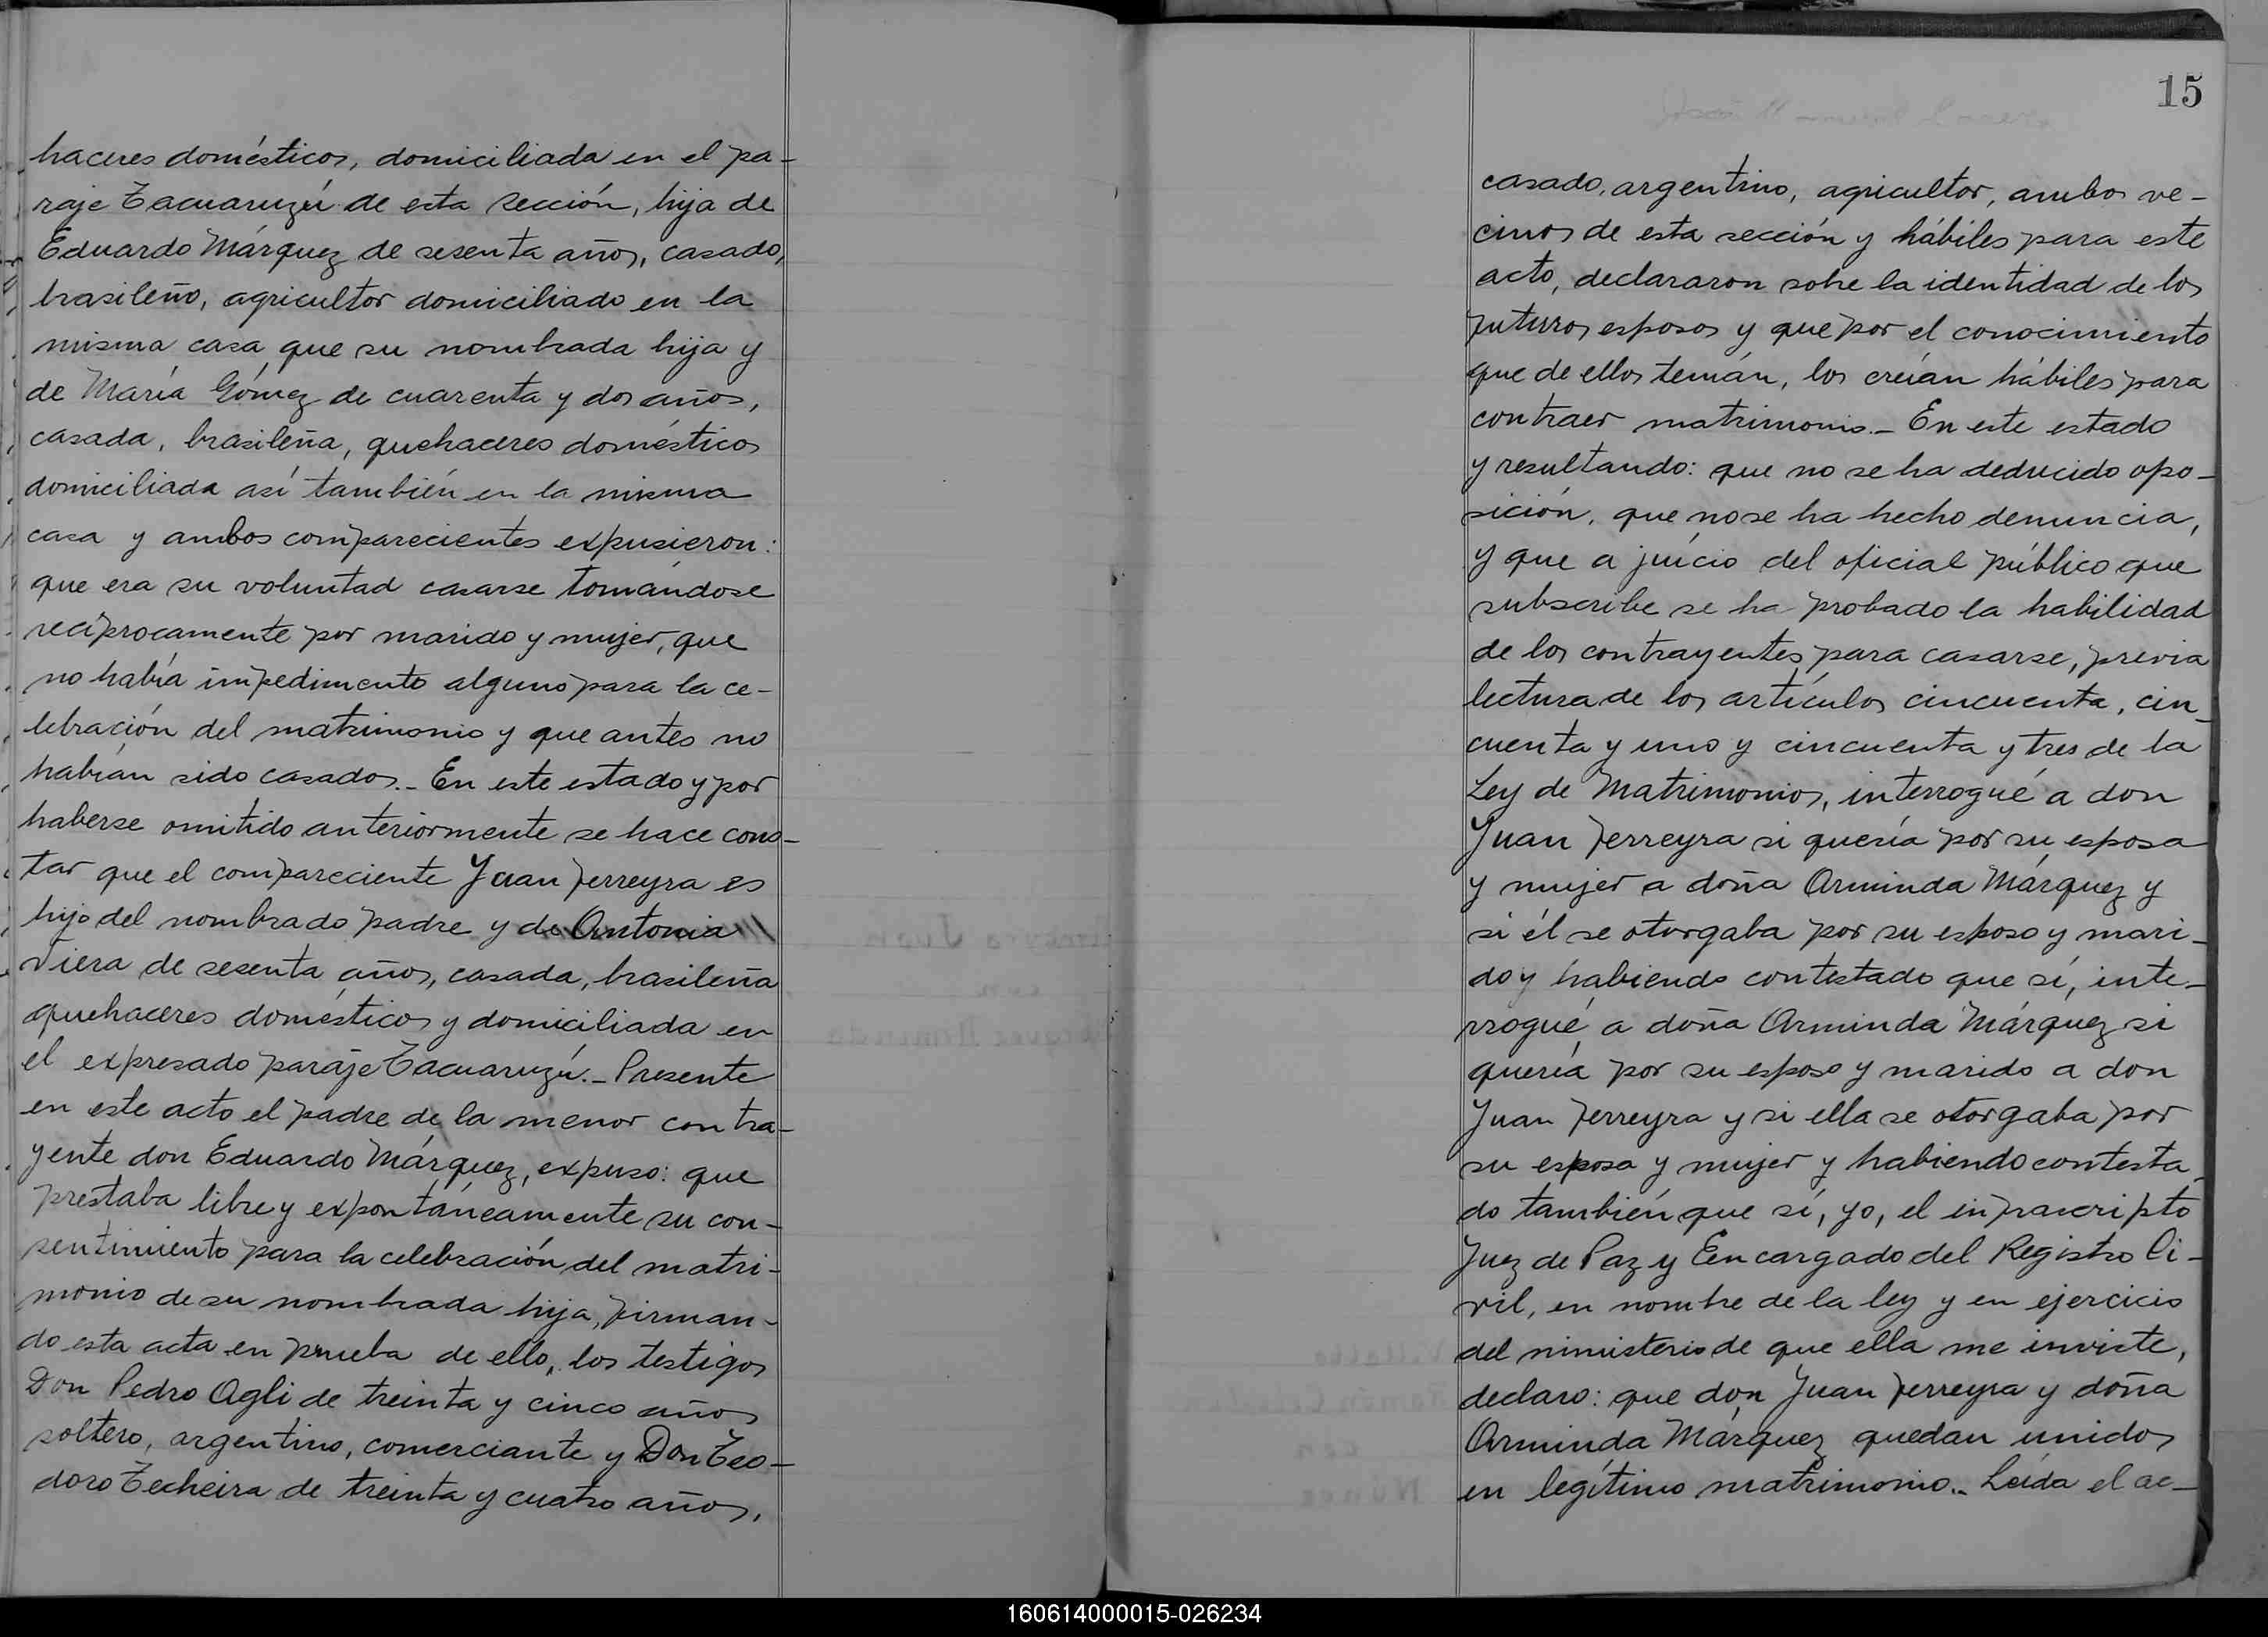 haceres domésticos, domiciliada en el pa-
raje Tacuaruzú de esta sección, hija de
Eduardo Márquez de sesenta años, casado,
brasileño, agricultor domiciliado en la
misma casa que su nombrada hija y
de María Gómez de cuarenta y dos años,
casada, brasileña, quehaceres domésticos
domiciliada así también en la misma
casa y ambos comparecientes expusieron:
que era su voluntad casarse tomándose
recíprocamente por marido y mujer, que
no había impedimento alguno para la ce-
lebración del matrimonio y que antes no
habían sido casados.- En este estado y por
haberse omitido anteriormente se hace cons-
tar que el compareciente Juan Ferreyra es
hijo del nombrado padre y de Antonia
Viera de sesenta años, casada, brasileña
quehaceres domésticos y domiciliada en
el expresado paraje Tacuaruzú.- Presente
en este acto el padre de la menor contra-
yente don Eduardo Márquez, expuso: que
prestaba libre y expontáneamente su con-
sentimiento para la celebración del matri-
monio de su nombrada hija, firman-
do esta acta en prueba de ello, los testigos
Don Pedro Agli de treinta y cinco años
soltero, argentino, comerciante y Don Teo-
doro Techeira de treinta y cuatro años,
15
casado, argentino, agricultor, ambos ve-
cinos de esta sección y hábiles para este
acto, declararon sobre la identidad de los
futuros esposos y que por el conocimiento
que de ellos tenían, los creían hábiles para
contraer matrimonio.- En este estado
y resultando: que no se ha deducido opo-
sición, que no se ha hecho denuncia,
y que a juício del oficial público que
subscribe se ha probado la habilidad
de los contrayentes para casarse, previa
lectura de los artículos cincuenta, cin-
cuenta y uno y cincuenta y tres de la
Ley de Matrimonios, interrogué a don
Juan Ferreyra si quería por su esposa
y mujer a doña Arminda Márquez y
si él se otorgaba por su esposo y mari-
do y habiendo contestado que sí, inte-
rrogué a doña Arminda Márquez si
quería por su esposo y marido a don
Juan Ferreyra y si ella se otorgaba por
su esposa y mujer y habiendo contesta
do también que sí, yo, el infrascripto
Juez de Paz y Eencargado del Registro Ci-
vil, en nombre de la ley y en ejercicio
del ministerio de que ella me inviste,
declaro: que don Juan Ferreyra y doña
Arminda Márquez quedan unidos
en legítimo matrimonio.- Leída el ac-
160614000015-026234